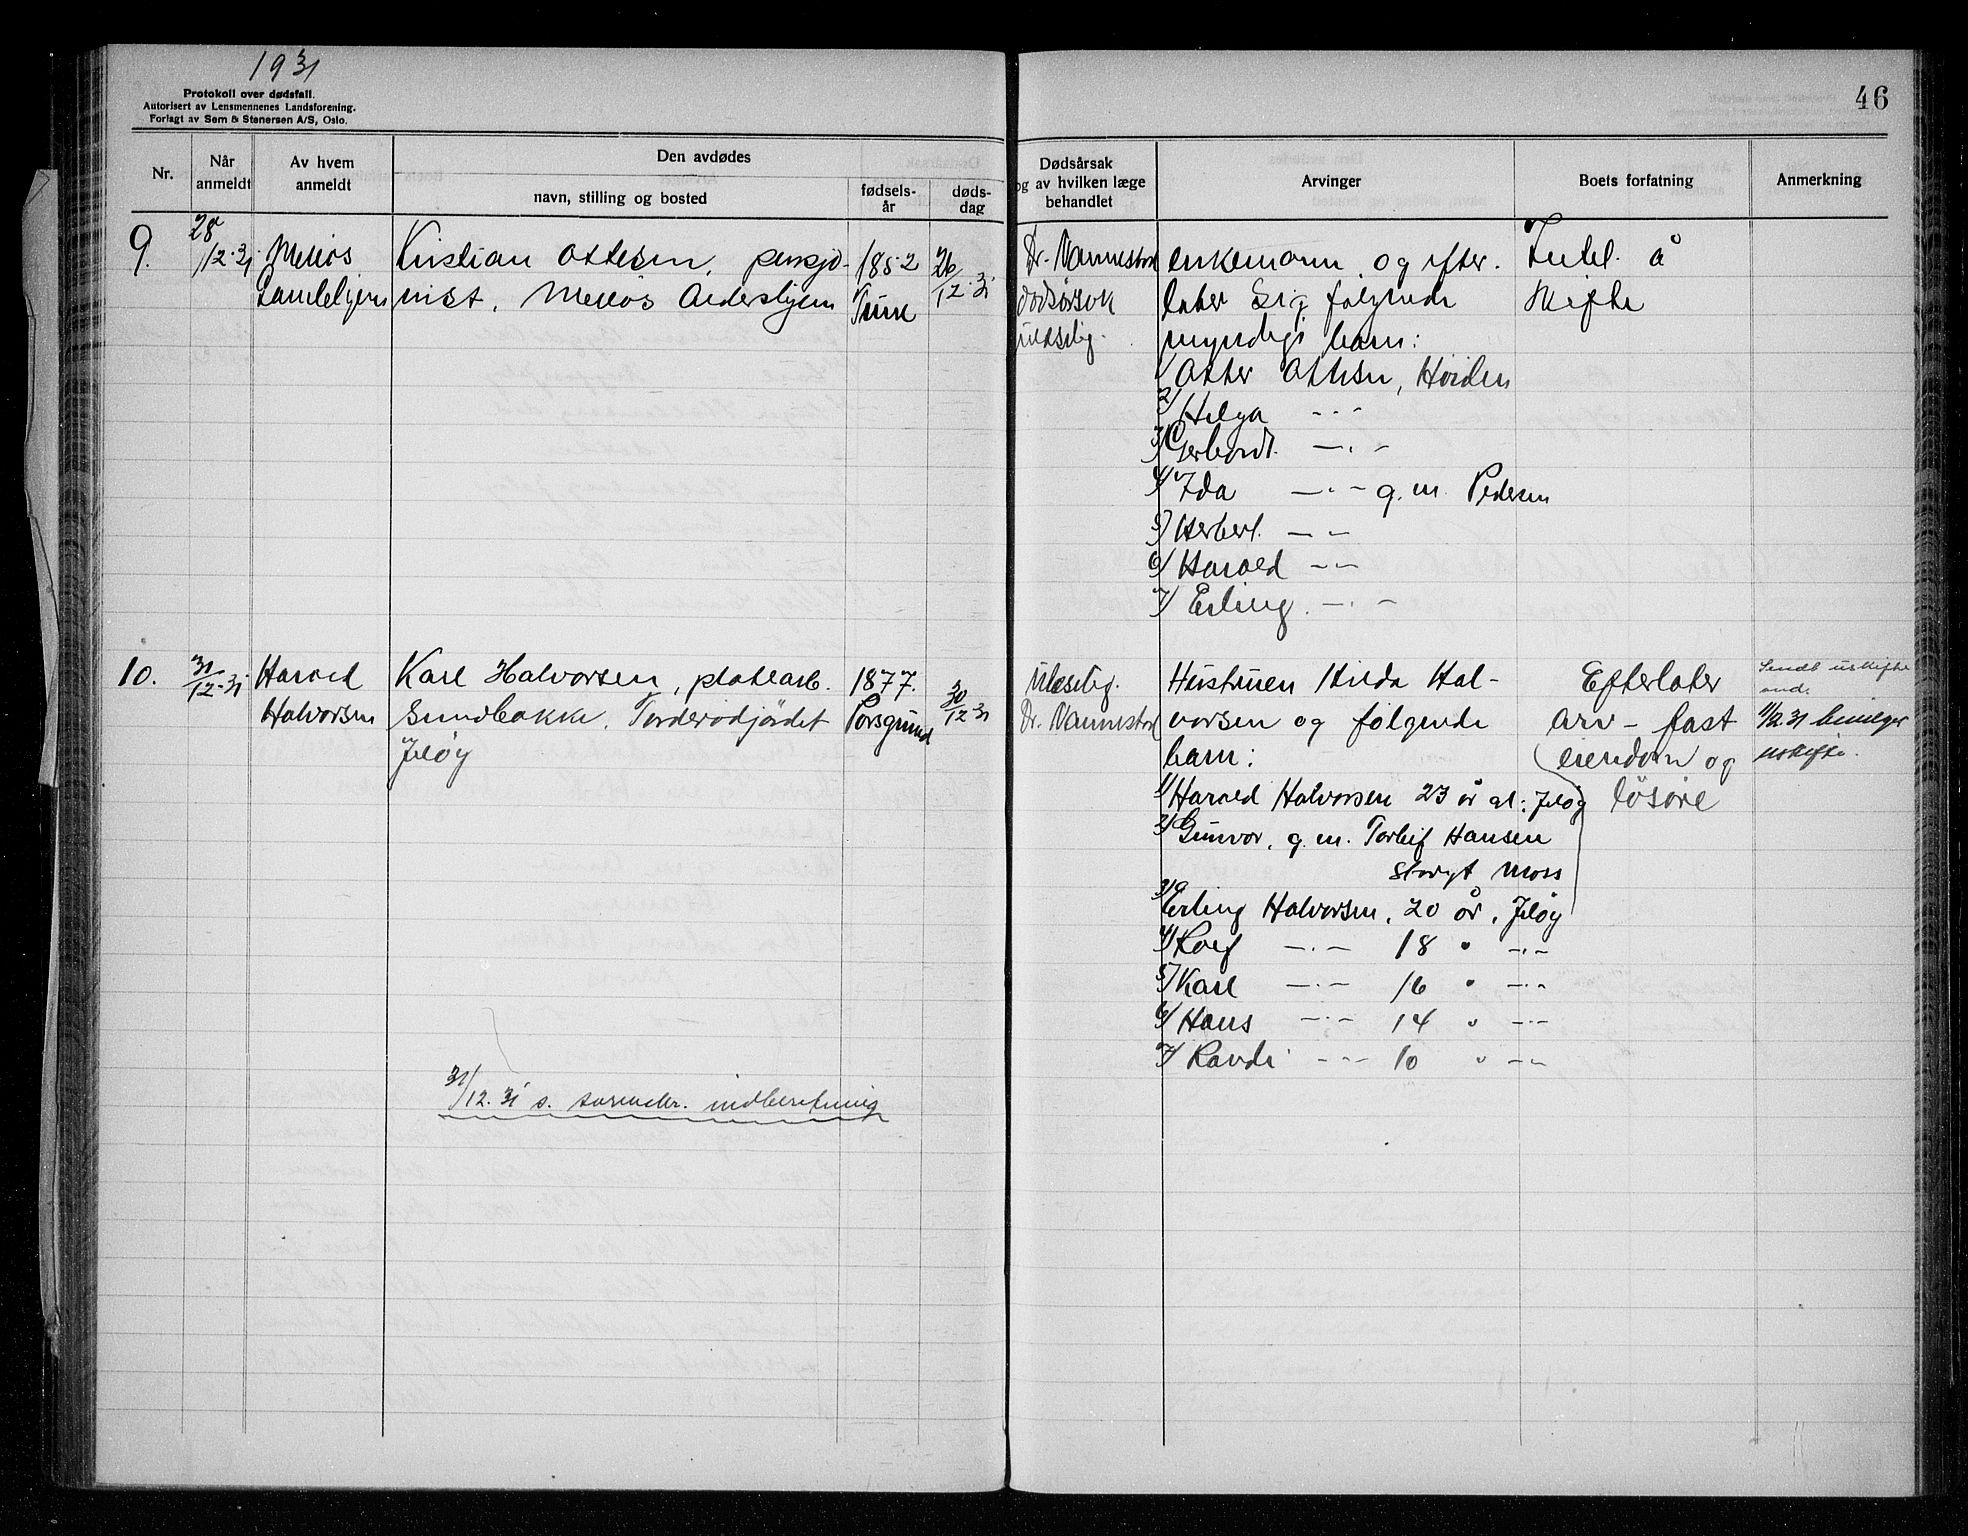 1931
Protokoll over dødsfall.
Autorisert av Lensmennenes Landsforening.
Forlagt av Sem & Stenersen A/S, Oslo.
46
Nr.
Når anmeldt
Av hvem anmeldt
Den avdødes
navn, stilling og bosted
fødsels-år
døds-dag
Dødsårsak og av hvilken læge behandlet
Arvinger
Boets forfatning
Anmerkning
9.
28/12.31
Mellös
Gamlehjem
Kristian Ottesen, pensjo-
nist, Mellös Alderhjem
1852
Tune
26/12.31
Dr. Vannestad
dødsørsak
uklslig.
enkemann, og efter-
later sig følgende
myndige barn:
1/ Otter Ottesen, Halden
2/ Helga -"-
3/ Gerhard. -"-
4/ Ida -"- g.m. Pedersen
5/ Herbert. -"-
6/ Harald -"-
7/ Erling. -"-
Intet å
skifte
10.
31/12.31
Harald
Halvorsen
Karl Halvorsen, platearb.
Sundbakke, Torderødjördet
Jeløy
1877.
Porsgrund
30/12 31
Dr. Vannestad
Hustruen Hilda Hal-
vorsen og følgende
barn:
1/ Harald Halvorsen 23 år gl: Jeløy
2/ Gunvor, g.m. Torleif Hansen
Storgt Moss
3/ Erling Halvorsen, 20 år, Jeløy
4/ Rolf -"- 18 " -"-
5/ Karl -"- 16 " -"-
6/ Hans -"- 14 " -"-
7/ Randi -"- 10 " -"-
Efterlater
arv - fast
eiendom og
løsøre
Sendt uskifte
uskifte.
31/12.31 s. indberetning